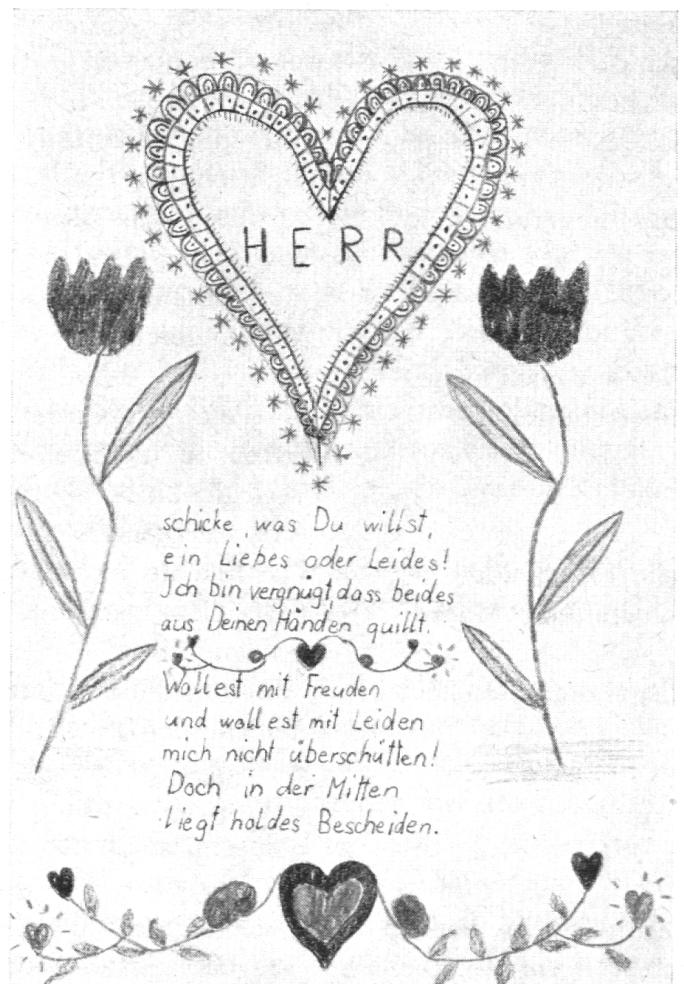 HERR
schicke, was Du willst,
ein Liebes oder Leides!
Ich bin vergnügt, dass beides
aus Deinen Händen quillt.
Wollest mit Freuden
und wollest mit Leiden
mich nicht überschütten!
Doch in der Mitten
liegt holdes Bescheiden.